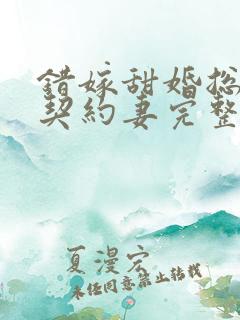 错嫁甜婚总
契约妻完整
夏漫宏
未经同意禁止转载